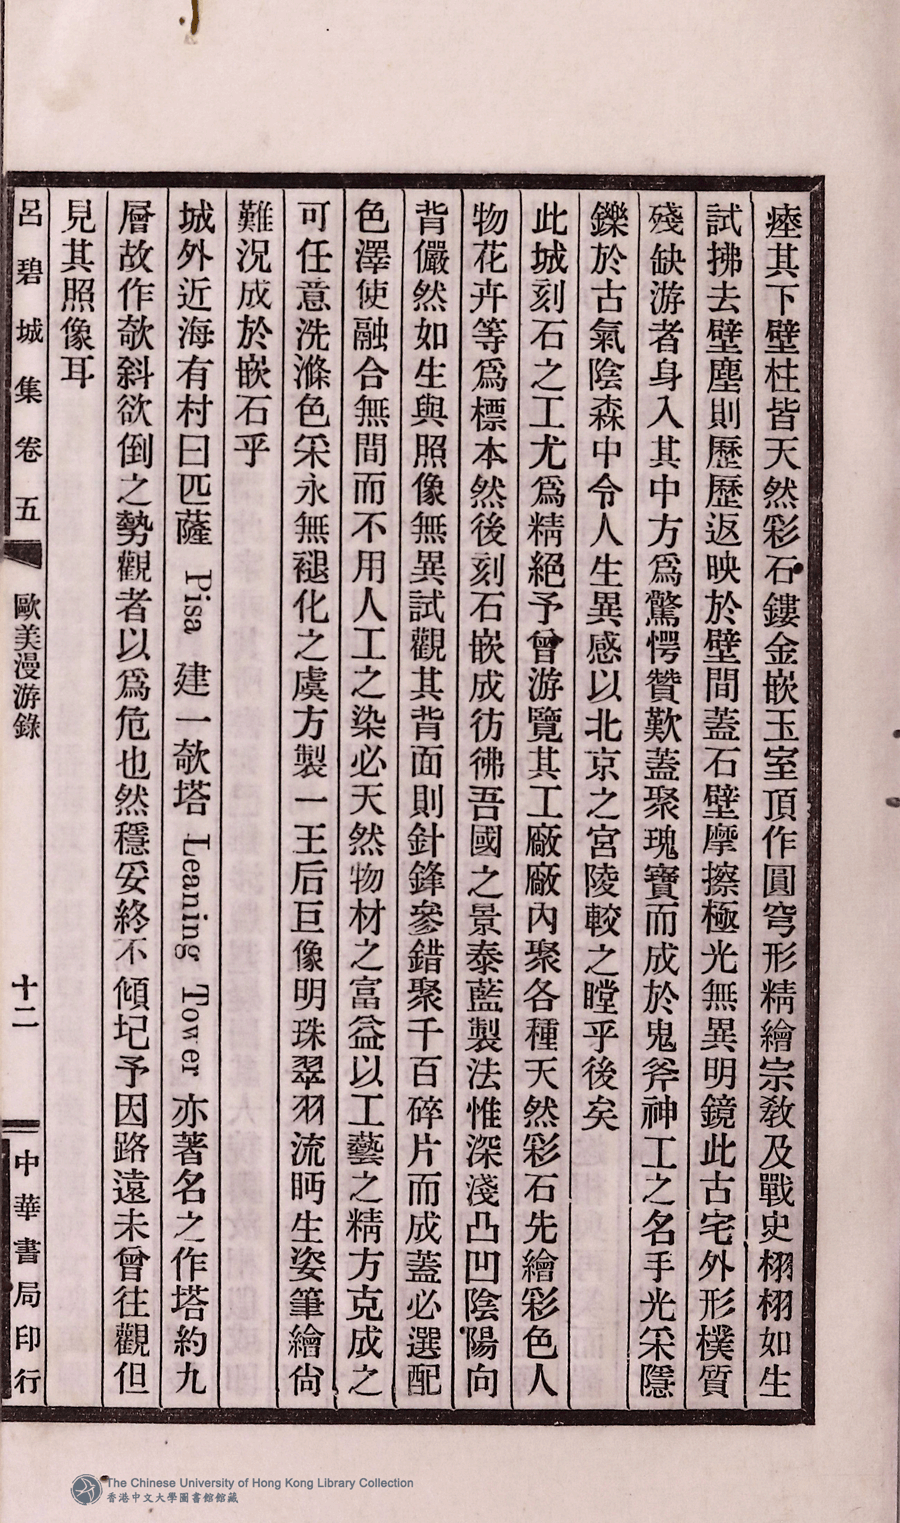 瘞其下壁柱皆天然彩石鏤金嵌玉室頂作圓穹形精繪宗教及戰史栩栩如生
試拂去壁塵則歷歷返映於壁間蓋石壁摩擦極光無異明鏡此古宅外形樸質
殘缺游者身入其中方爲驚愕贊歎蓋聚瑰寶而成於鬼斧神工之名手光采隱
鑠於古氣陰森中令人生異感以北京之宮陵較之瞠乎後矣
此城刻石之工尤爲精絕予曾游覽其工廠廠內聚各種天然彩石先繪彩色人
物花卉等爲標本然後刻石嵌成彷彿吾國之景泰藍製法惟深淺凸凹陰陽向
背儼然如生與照像無異試觀其背面則針鋒參錯聚千百碎片而成蓋必選配
色澤使融合無間而不用人工之染必天然物材之富益以工藝之精方克成之
可任意洗滌色采永無褪化之虞方製一王后巨像明珠翠羽流眄生姿筆繪尙
難況成於嵌石乎
城外近海有村曰匹薩 Pisa 建一欹塔 Leaning Tower 亦著名之作塔約九
層故作欹斜欲倒之勢觀者以爲危也然穩妥終不傾圮予因路遠未曾往觀但
見其照像耳
呂碧城集卷五 歐美漫游錄 十二 中華書局印行
The Chinese University of Hong Kong Library Collection
香港中文大學圖書館館藏